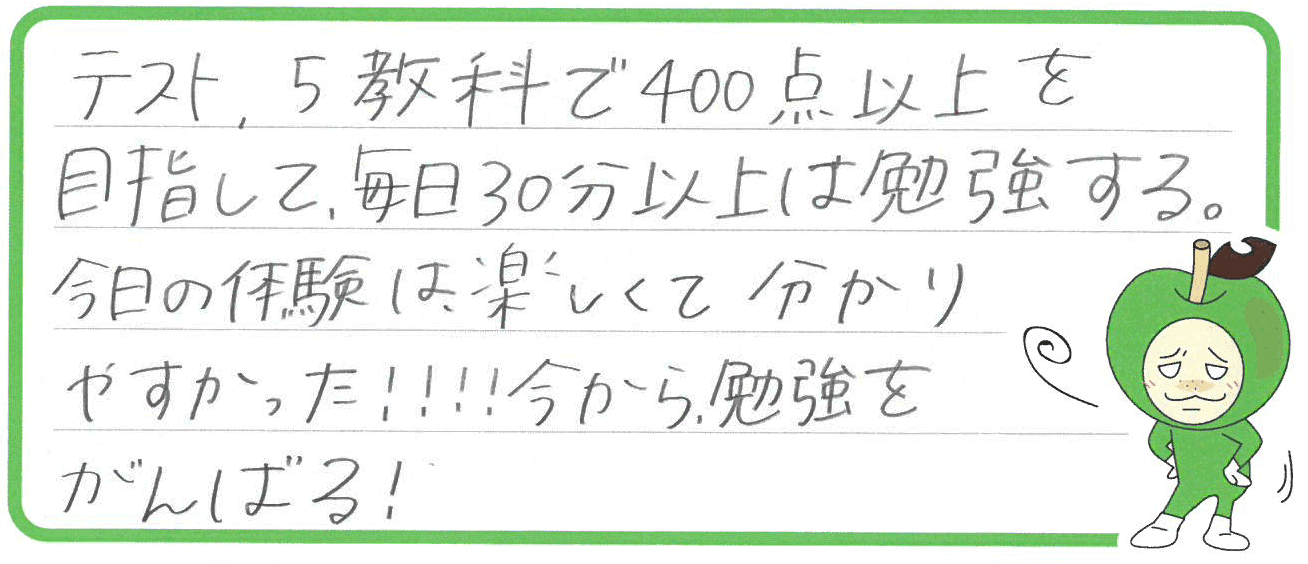 テスト、5教科で400点以上を
目指して、毎日30分以上は勉強する。
今日の体験は、楽しくて分かり
やすかった!!!!今から、勉強を
がんばる!